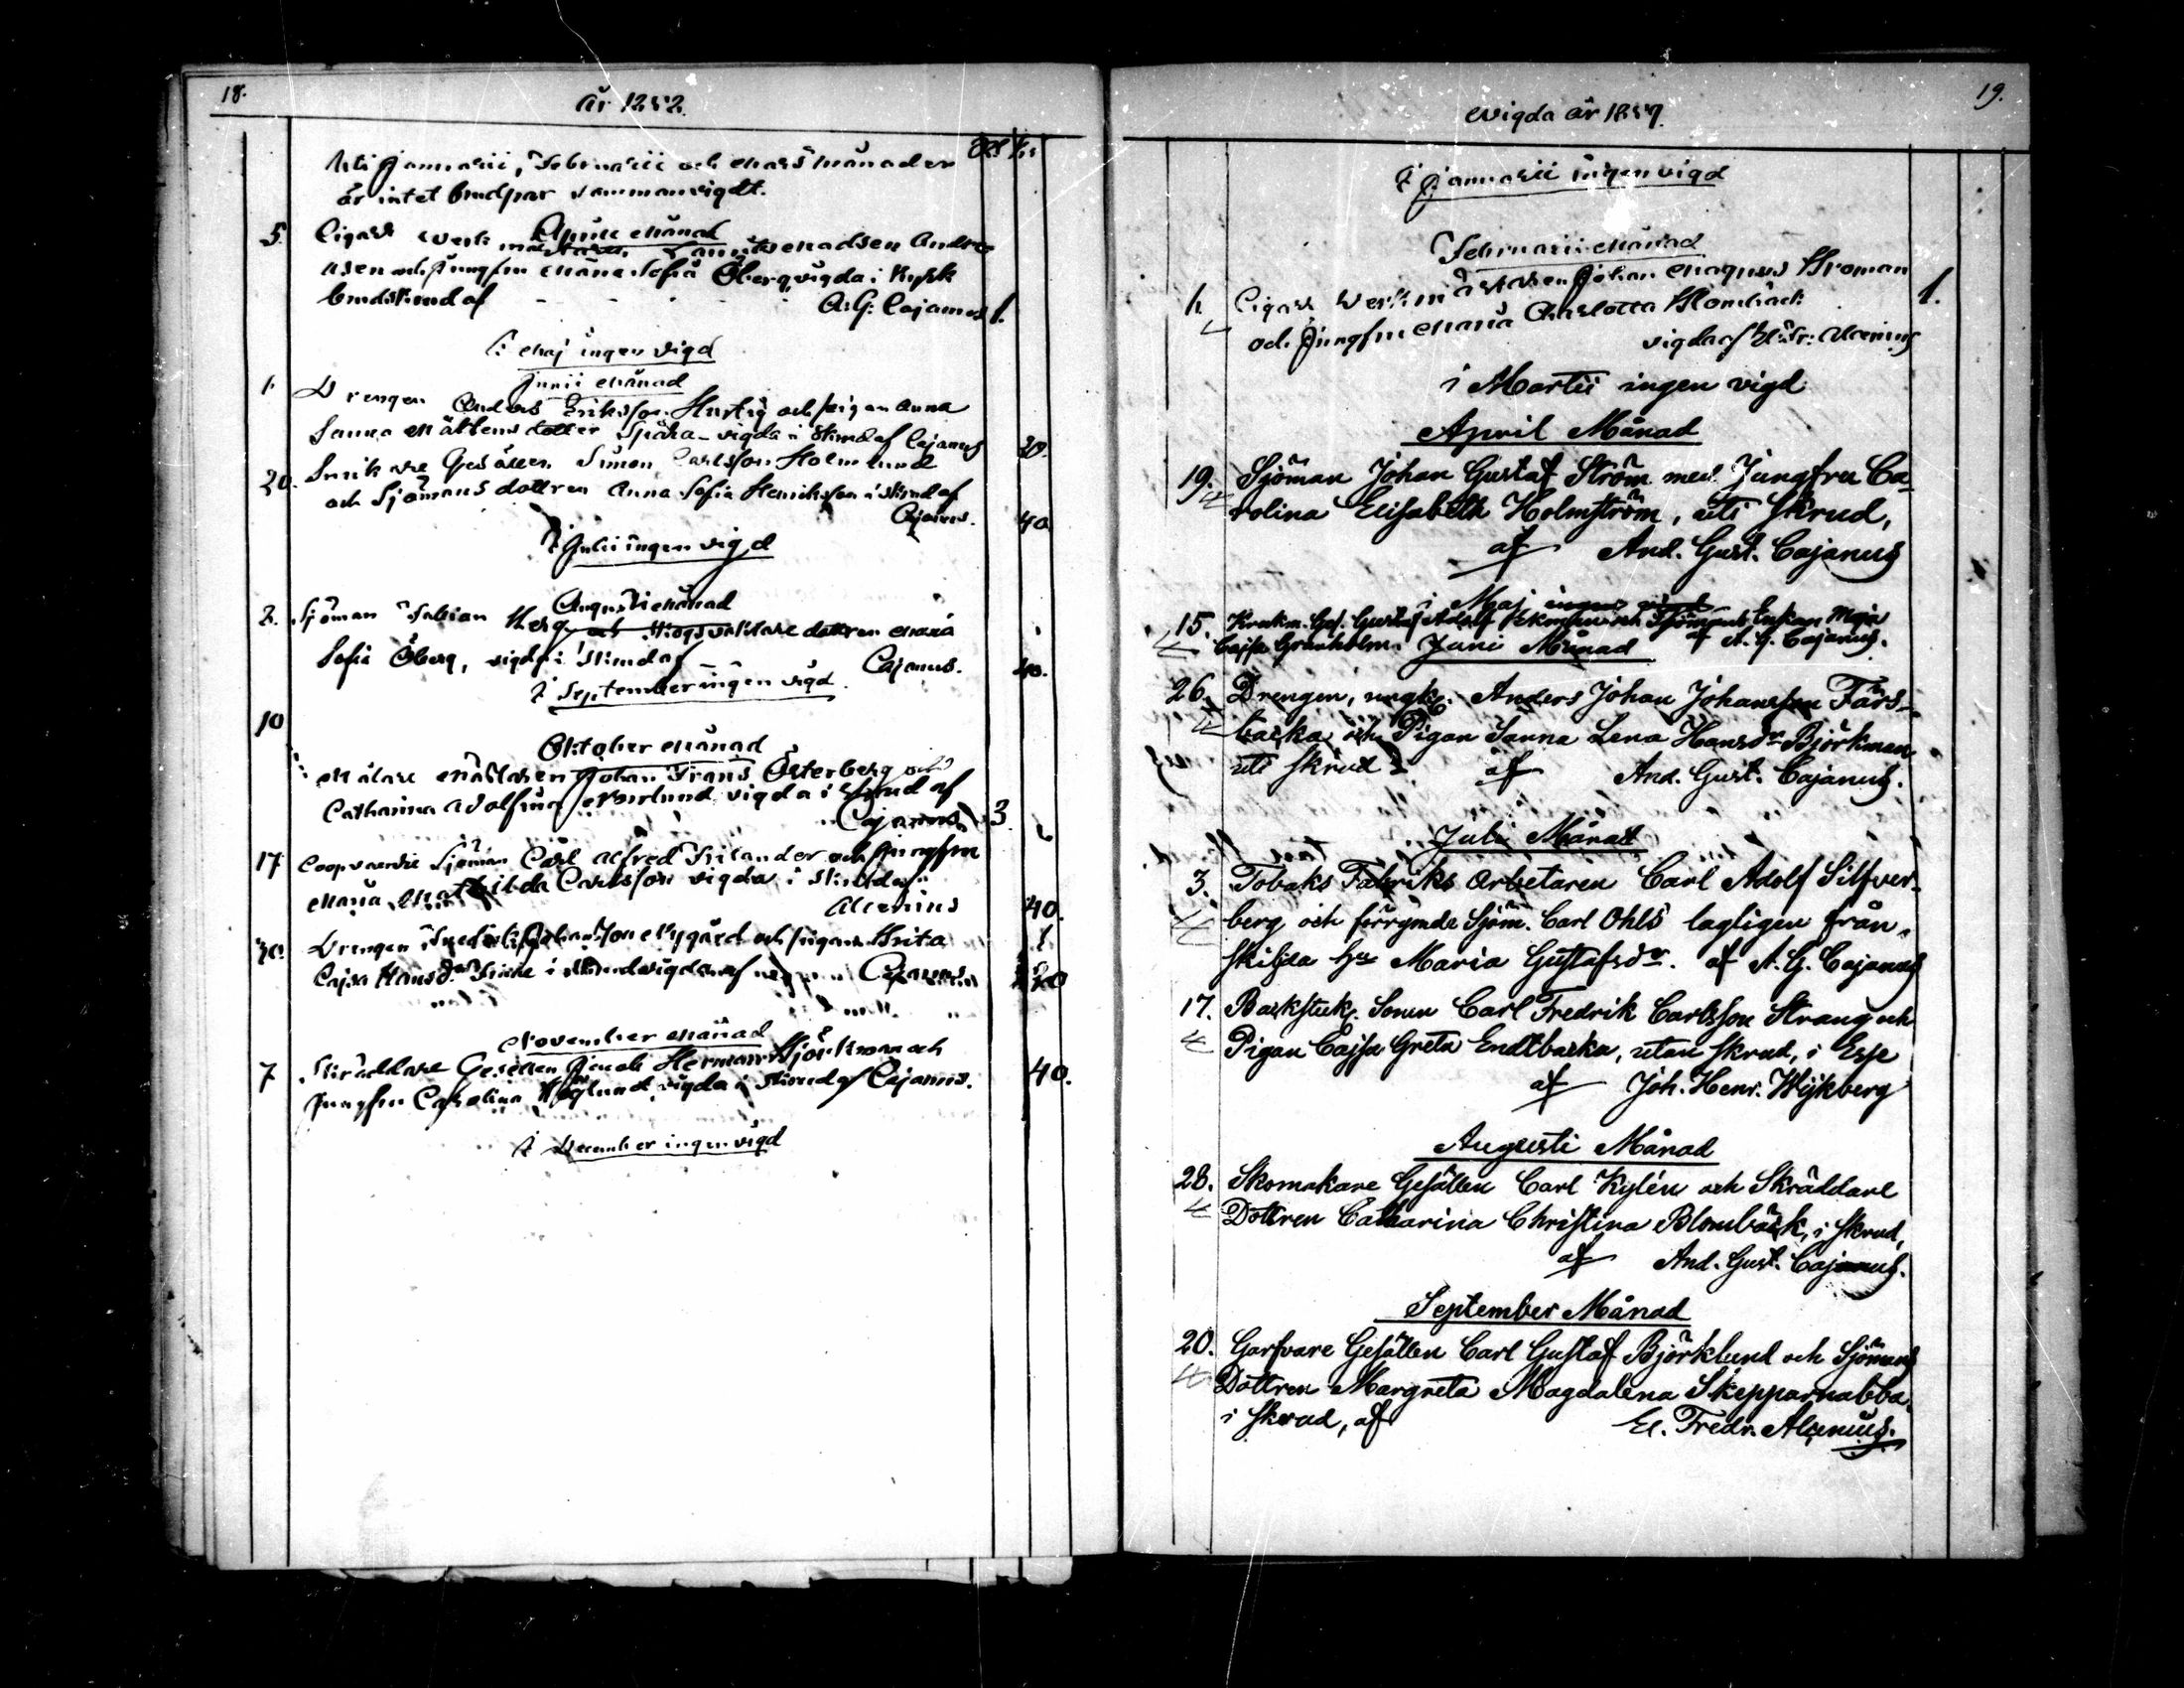 18.
År 1852.
Uti Januarii, Februarii och Mars månader
är intet brudpar sammanvigdt.
April Månad
5. Cigarr Verkmästaren Laurits Madsen Andre-
sen och Jungfru Maria Sofia Öberg vigda i Kyrk
brudskrud af A. G. Cajanus 1.
I Maj ingen vigd
Junii Månad
1. Drengen Anders Eriksson Hurtig och pigan Anna
Sanna Mattsens dotter Spåra vigda i skrud af Cajanus 20.
20. Snickare Gesällen Simon Carlsson Holmlund
och Sjömans dottren Anna Sofia Henriksson i skrud af
Cajanus. 40
I Julii ingen vigd
Augusti Månad
2. Sjöman Fabian Berg och Skogsvaktare dottren Maria
Sofia Öberg, vigda i skrud af Cajanus. 40.
I September ingen vigd
10
Oktober Månad
Målare Mästaren Johan Frans Österberg och
Catharina Adolfina vigda i skrud af
Cajanus 3.
17 Coopvaerdie Sjöman Carl Alfred Frilander och Jungfru
Maria Mathilda Carlsson vigda i skrud af
Alcenius 40.
30. Drengen Fredrik Johansson Nygård och pigan Brita
Cajsa Hansdr i skrud vigda af Cajanus 20
November Månad
7 Skräddare Gesällen Jacob Herman Björkman och
Jungfru Carolina Höglund vigda i skrud af Cajanus. 40.
I December ingen vigd
19.
Vigda år 1857.
I Januarii ingen vigd
Februarii Månad
1. Cigarr Verkmästaren Johan Magnus Broman 1.
och Jungfru Maria Charlotta Blombäck
vigda af El: Fr: Alcenius
i Martii ingen vigd
April Månad
19. Sjöman Johan Gustaf Ström med Jungfru Ca-
rolina Elisabeth Holmström, uti skrud,
af And. Gust. Cajanus
i Maj ingen vigd
15. Krukm. Ges. Gustaf Adolf Ekman och Sjömans Enkan Maja
Cajsa Granholm. af A. G. Cajanus.
Juni Månad
26. Drengen, ungk. Anders Johan Johansson Färs-
backa och Pigan Sanna Lena Hansdr Björkman
uti skrud af And. Gust. Cajanus.
Juli Månad
3. Tobaks Fabriks Arbetaren Carl Adolf Silfver-
berg och förrymde Sjöm. Carl Ohls lagligen från-
skiljda Hu Maria Gustafsdr. af A. G. Cajanus
17. Backstuk. Sonen Carl Fredrik Carlsson Strang och
Pigan Cajsa Greta Endtbacka, utan skrud, i Esse
af Joh. Henr. Wijkberg
Augusti Månad
28. Skomakare Gesällen Carl Kylén och Skräddare
Dottren Catharina Christina Blombäck, i skrud,
af And. Gust. Cajanus.
September Månad
20. Garfvare Gesällen Carl Gustaf Björklund och Sjömans
Dottren Margreta Magdalena Skepparnabba
i skrud, af El. Fredr. Alcenius.